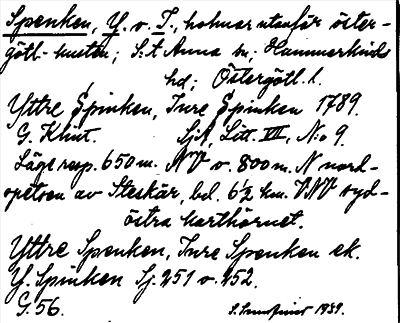 Spenken, Y. o. I., holmar utanför öster-
götl. kusten; S:t Anna sn; Hammarkinds
hd; Östergötl. l.
Yttre Spinken, Inre Spinken 1789.
G. Klint. SjA, Litt. VII, N:o 9.
Läge resp. 650 m. NV o. 800 m. N nord-
spetsen av Steskär, bel. 6½ km. VNV syd-
östra karthörnet.
Yttre Spenken, Inre Spenken ek.
Y. Spinken Sj. 251 o. 252.
G. 56. 1939.